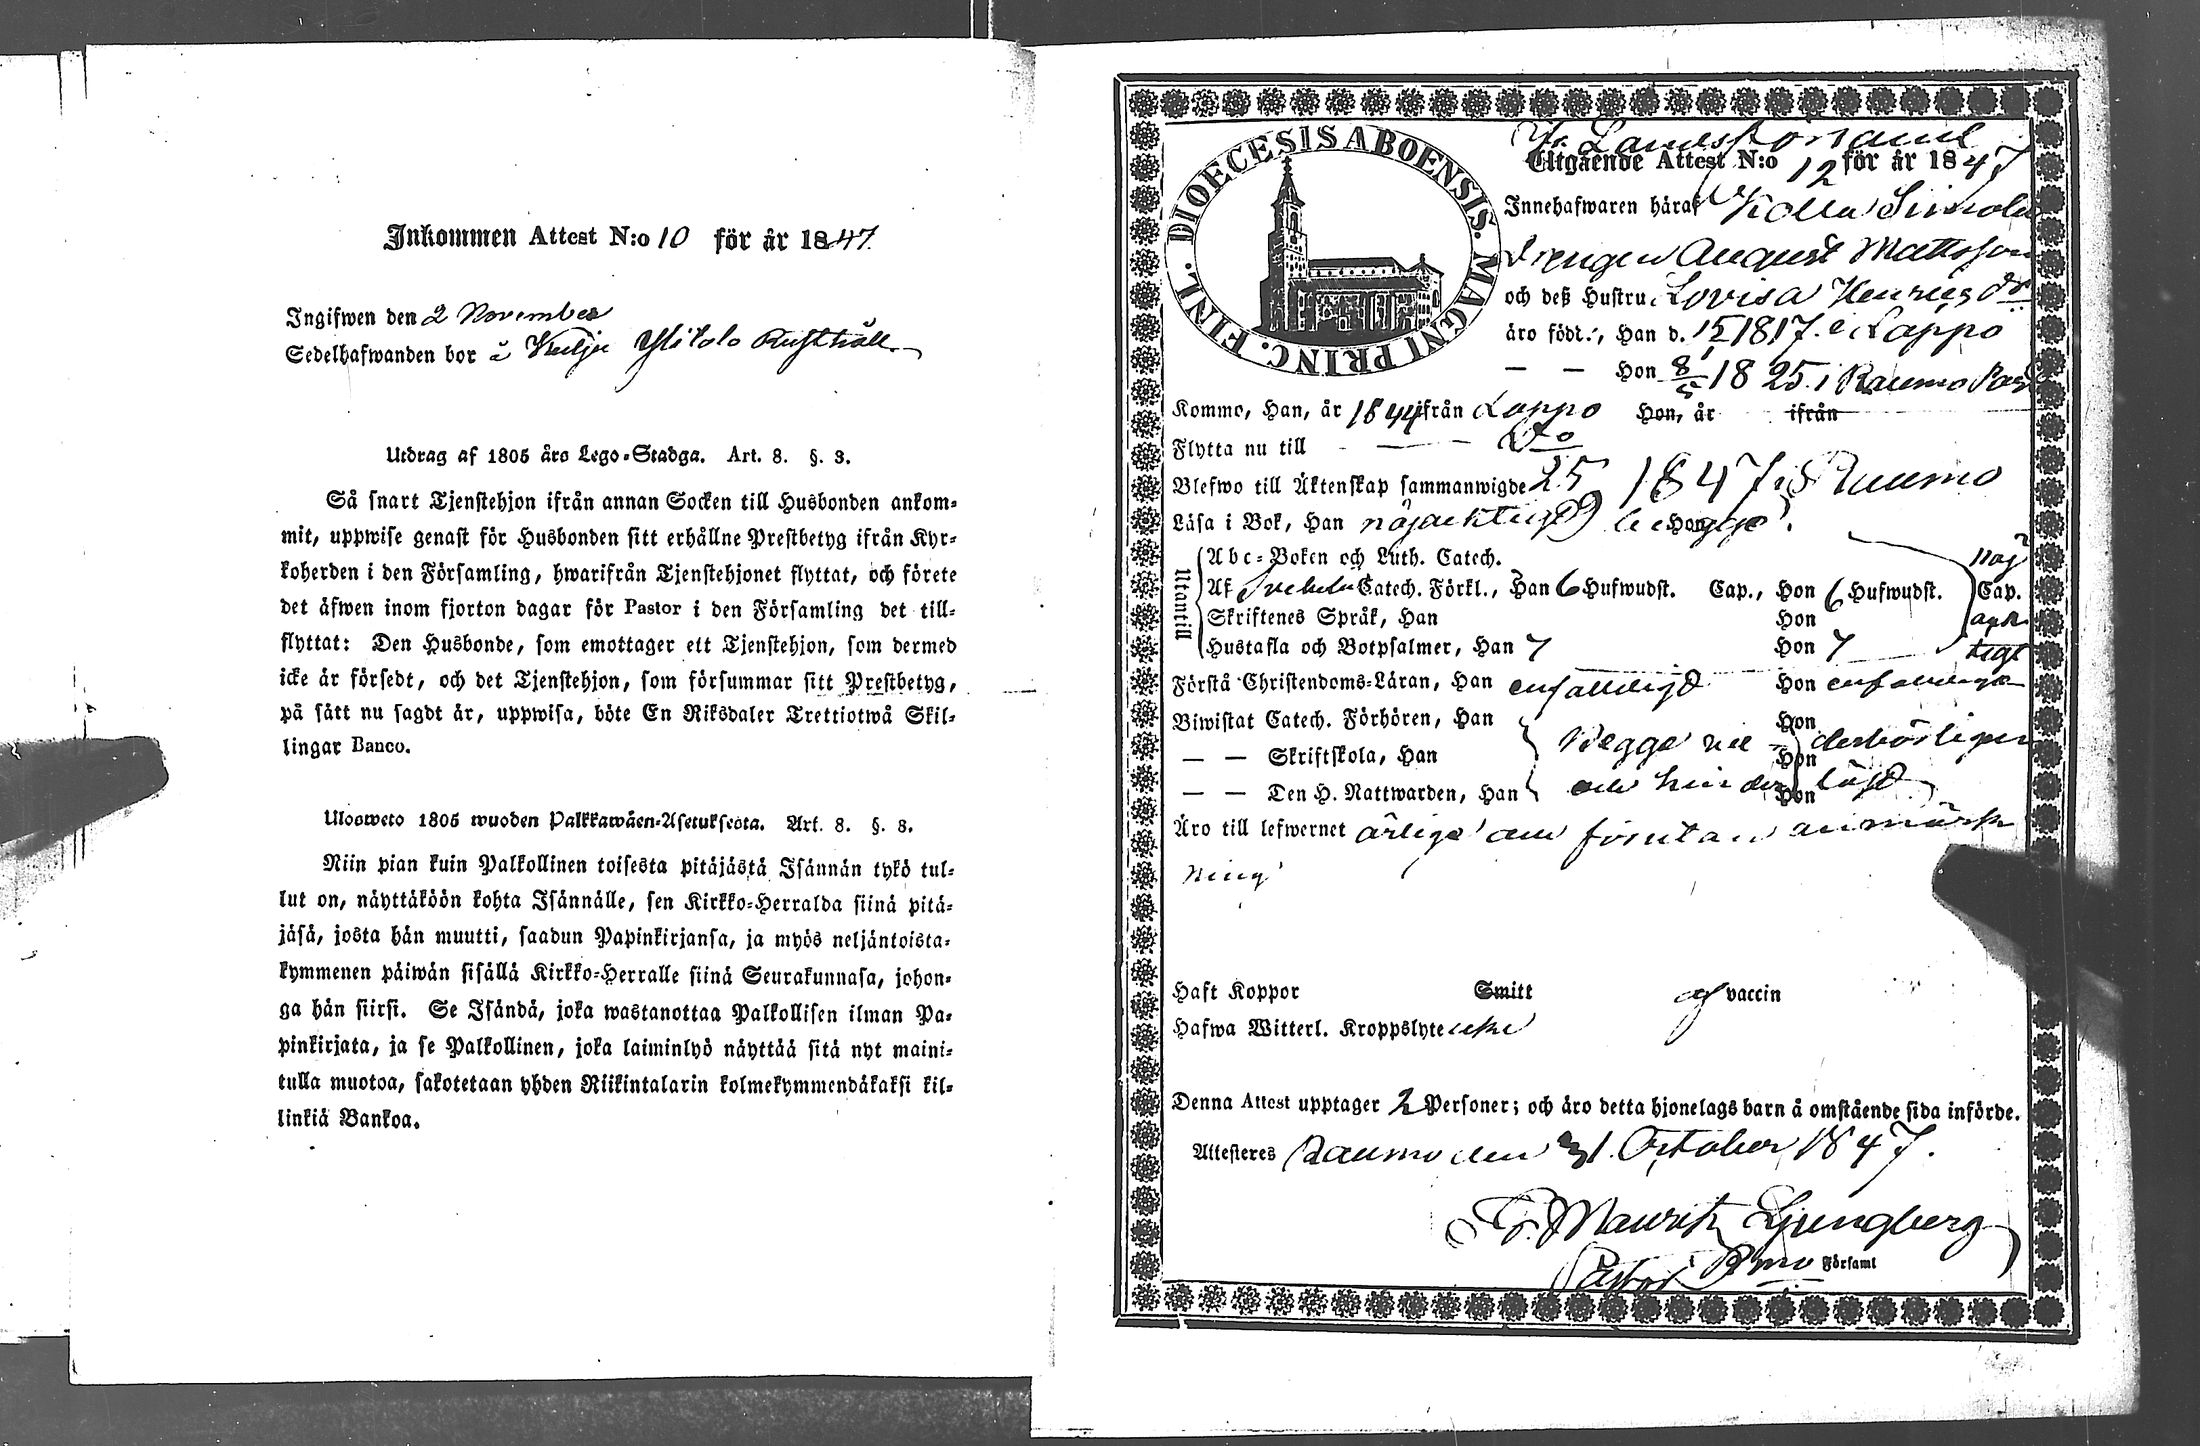 Inkommen Attest N:o 10 för år 1847.
Ingifwen den 2 November
Sedelhafwanden bor å Kulju Ylitalo Rusthåll
Utdrag af 1805 års Lego-Stadga. Art. 8. §. 3.
Så snart Tjenstehjon ifrån annan Socken till Husbonden ankom-
mit, uppwise genast för Husbonden sitt erhållne Prestbetyg ifrån Kyr-
koherden i den Församling, hwarifrån Tjenstehjonet flyttat, och förete
det äfwen inom fjorton dagar för Pastor i den Församling det till-
flyttat: Den Husbonde, som emottager ett Tjenstehjon, som dermed
icke är försedt, och det Tjenstehjon, som försummar sitt Prestbetyg,
på sätt nu sagdt är, uppwisa, böte En Riksdaler Trettiotwå Skil-
lingar Banco.
Ulosweto 1805 wuoden Palkkawäen-Asetuksesta. Art. 8. §. 3.
Niin pian kuin Palkollinen toisesta pitäjästä Isännän tykö tul-
lut on, näyttäköön kohta Isännälle, sen Kirkko-Herralda siinä pitä-
jäsä, josta hän muutti, saadun Papinkirjansa, ja myös neljäntoista-
kymmenen päiwän sisällä Kirkko-Herralle siinä Seurakunnasa, johon-
ga hän siirsi. Se Isändä, joka wastanottaa Palkollisen ilman Pa-
pinkirjata, ja se Palkollinen, joka laiminlyö näyttää sitä nyt maini-
tulla muotoa, sakotetaan yhden Riikintalarin kolmekymmendäkaksi kil-
linkiä Bankoa.
DIOECESIS ABOENSIS. MAGNI PRINC. FINL.
Utgående Attest N:o 12 för år 1847
Innehafwaren häraf
Drengen August Mattsson
och deß Hustru Lovisa Henricsdr
äro född:, Han d. 1817 i Lappo
— — Hon 8/5 1825 i Raumo
Kommo, Han, år 1844 ifrån Lappo Hon, år ifrån
Flytta nu till — — Do
Blefwo till Äktenskap sammanwigde 25 1847 i Raumo
Läsa i Bok, Han nöjaktigt Hon begge
Utantill
Abc-Boken och Luth. Catech. nöj
Af Svebelii Catech. Förkl., Han 6 Hufwudst. Cap., Hon 6 Hufwudst. Cap.
Skriftenes Språk, Han Hon ack
Hustafla och Botpsalmer, Han 7 Hon 7 tigt
Förstå Christendoms-Läran, Han enfalldigt Hon enfalldigt
Biwistat Catech. Förhören, Han Hon
— — Skriftskola, Han Begge Hon
— — Den H. Nattwarden, Han Hon
Äro till lefwernet ärliga och förutan anmärk
ning
Haft Koppor Smitt af vaccin
Hafwa Witterl. Kroppslyte icke
Denna Attest upptager 2 Personer; och äro detta hjonelags barn å omstående sida införde.
Attesteres Raumo den 31 October 1847.
Mauritz Ljungberg
Pastor i Rmo Församl